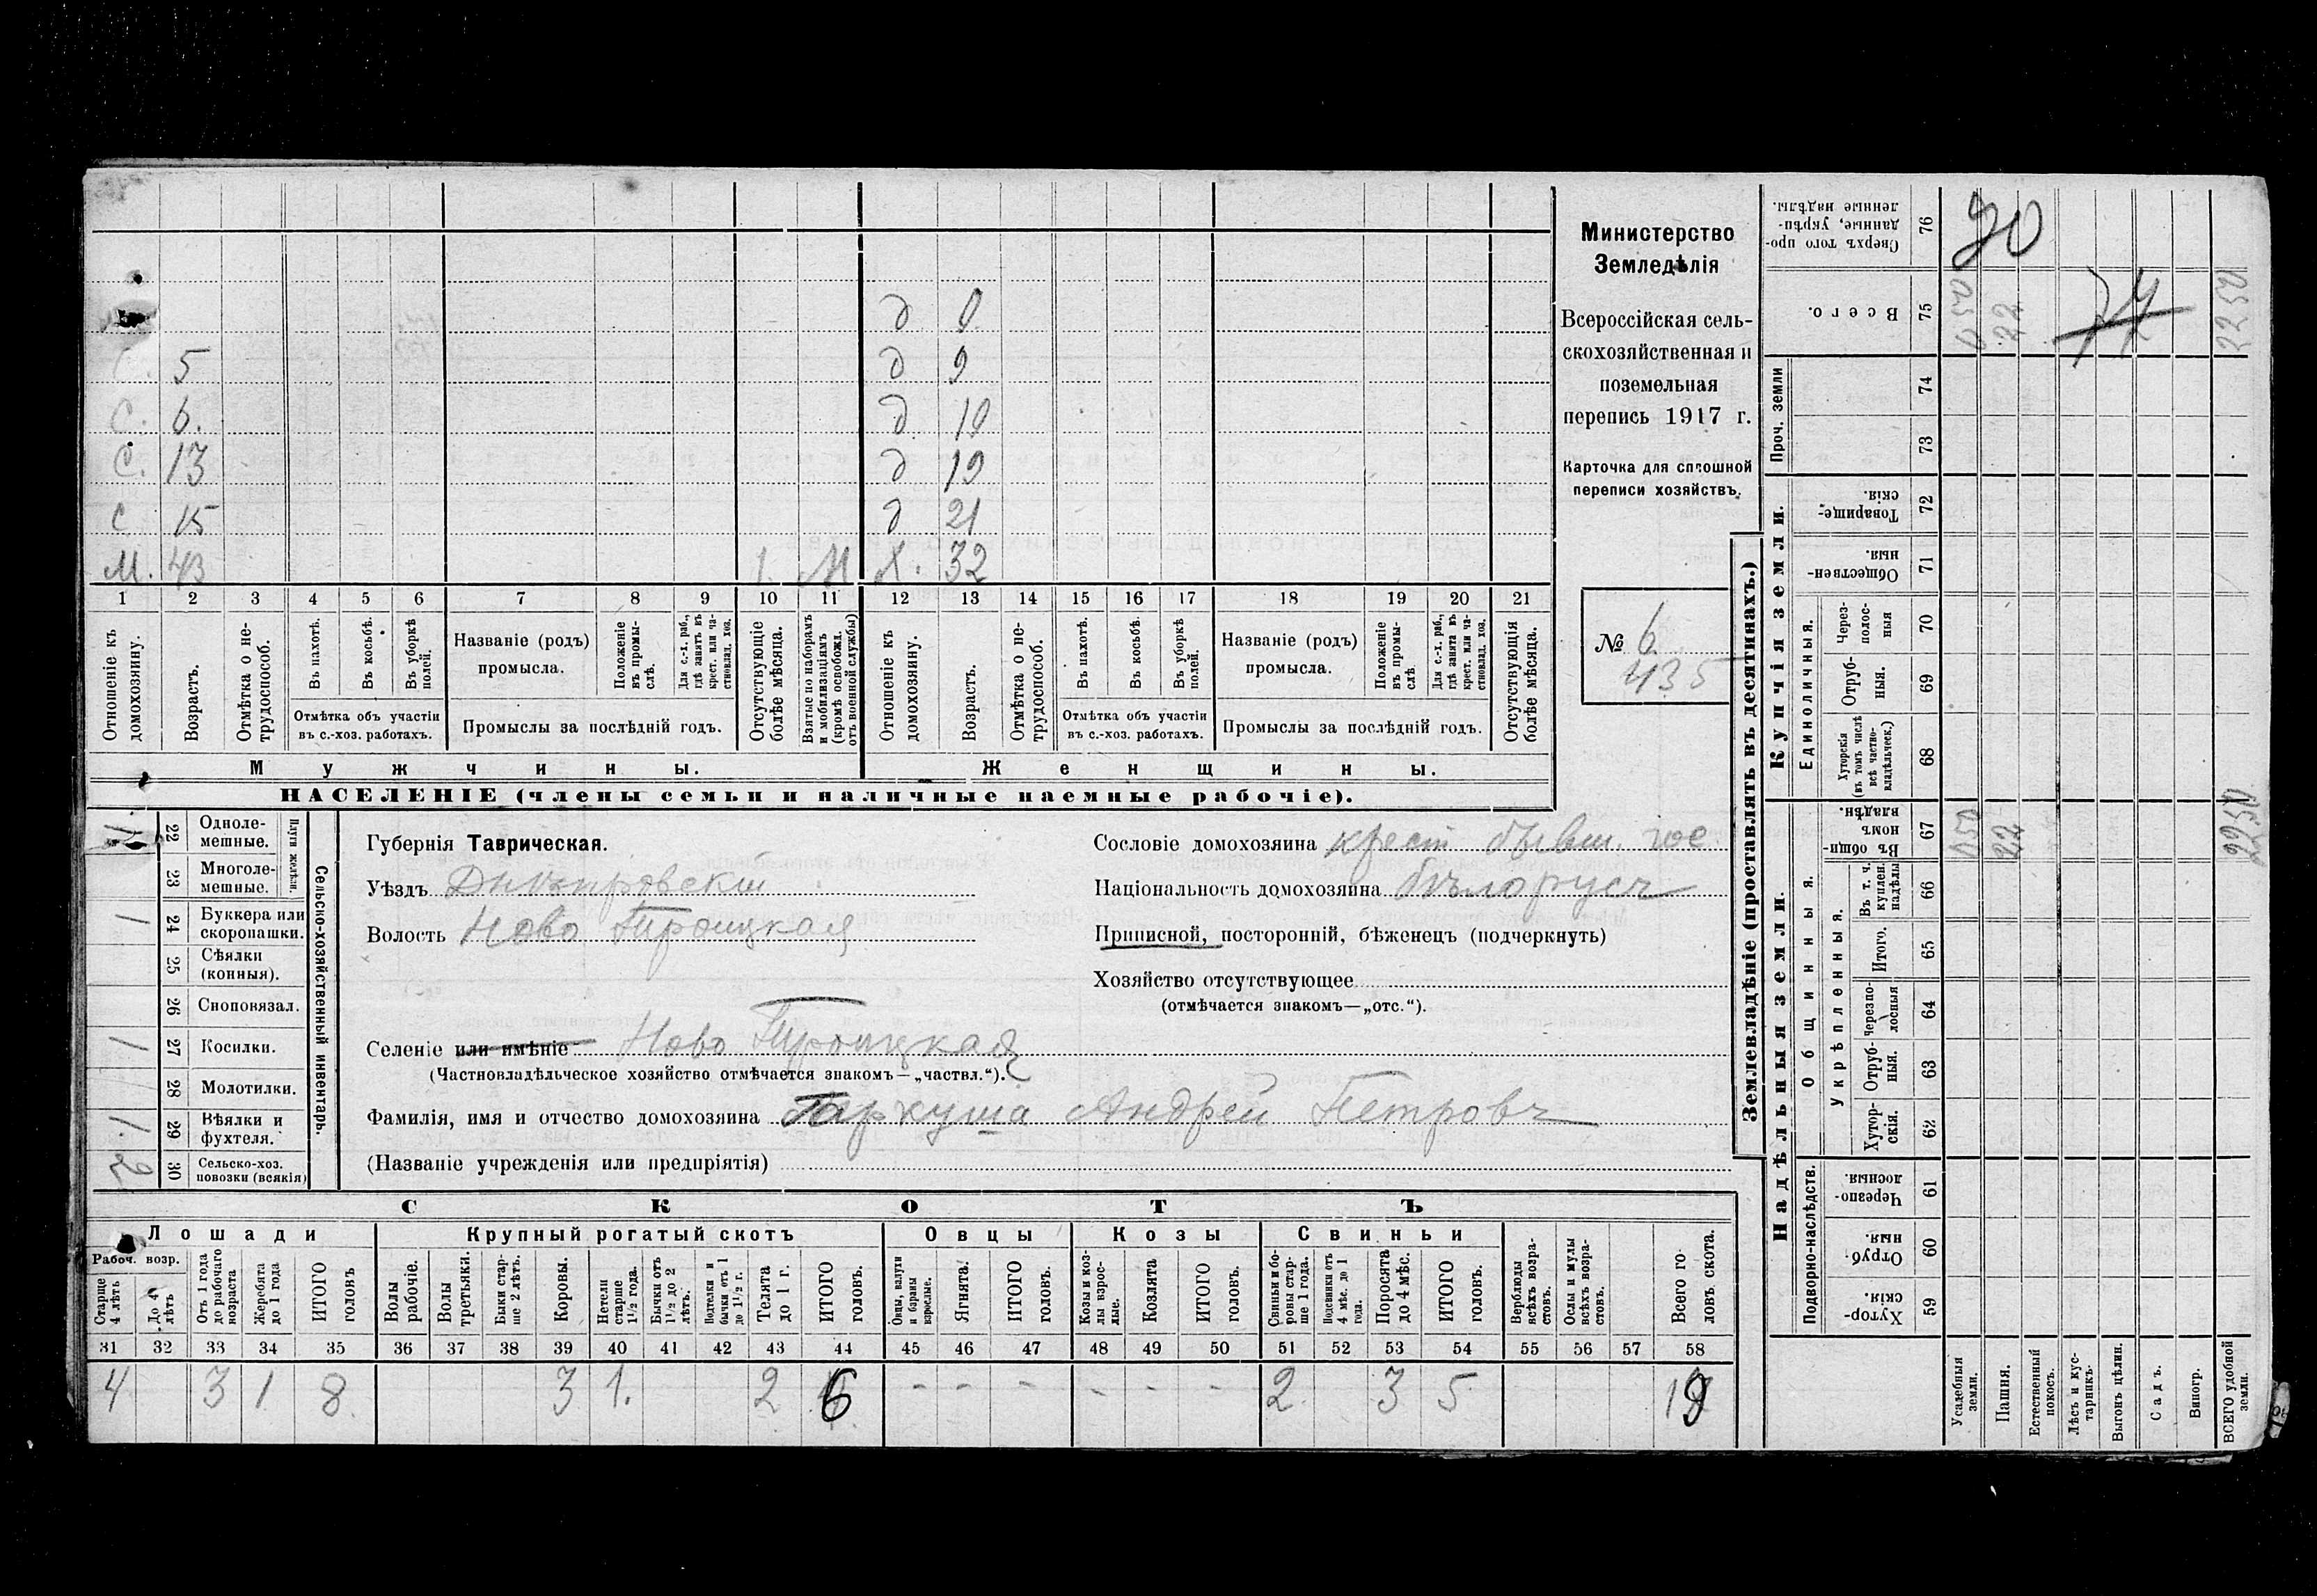 Министерство
Земледѣлія
Всероссійская сель-
скохозяйственная и
поземельная
перепись 1917 г.
Карточка для сплошной
переписи хозяйствъ.
№ 6
435
д 9
С. 5 д 9
С. 6. д 10
С. 13 д 19
С 15 д 21
М. 43 1. М Х. 32
1 2 3 4 5 6 7 8 9 10 11 12 13 14 15 16 17 18 19 20 21
Отношеніе къ домохозяину.
Возрастъ.
Отмѣтка о не-трудоспособ.
Въ пахотѣ.
Въ косьбѣ.
Въ уборкѣ полей.
Отмѣтка объ участіи
въ с.-хоз. работахъ.
Названіе (родъ)
промысла.
Положеніе въ промы-слѣ.
Для с.-х. раб., гдѣ занятъ въ крест. или ча-стновлад. хоз.
Промыслы за послѣдній годъ.
Отсутствующіе болѣе мѣсяца.
Взятые по наборамъ и мобилизаціямъ (кромѣ освобожд. отъ военной службы)
Отношеніе къ домохозяину.
Возрастъ.
Отмѣтка о не-трудоспособ.
Въ пахотѣ.
Въ косьбѣ.
Въ уборкѣ полей.
Отмѣтка объ участіи
въ с.-хоз. работахъ.
Названіе (родъ)
промысла.
Положеніе въ промы-слѣ
Для с.-х. раб., гдѣ занята въ крест. или ча-стновлад. хоз.
Промыслы за послѣдній годъ.
Отсутствующія болѣе мѣсяца.
Мужчины.
Женщины.
НАСЕЛЕНІЕ (члены семьи и наличные наемные рабочіе).
Сельско-хозяйственный инвентарь.
Плуги желѣзн.
22 Одноле-мешные.
23 Многоле-мешные.
1 24 Буккера или скоропашки.
25 Сѣялки (конныя).
26 Сноповязал.
1 27 Косилки.
28 Молотилки.
1. 29 Вѣялки и фухтеля.
2 30 Сельско-хоз. повозки (всякія)
Губернія Таврическая.
Уѣздъ Днѣпровскій
Волость Ново Троицкая
Селеніе или имѣніе Ново Троицкая
(Частновладѣльческое хозяйство отмѣчается знакомъ—„частвл.“).
Фамилія, имя и отчество домохозяина Гаркуша Андрей Петровъ
(Названіе учрежденія или предпріятія)
Сословіе домохозяина крест бывш. гос.
Національность домохозяина бѣлорусъ
Приписной, посторонній, бѣженецъ (подчеркнуть)
Хозяйство отсутствующее
(отмѣчается знакомъ—„отс.“).
СКОТЪ
Лошади Крупный рогатый скотъ Овцы Козы Свиньи
Рабоч. возр.
Старше 4 лѣтъ
До 4 лѣтъ
Отъ 1 года до рабочаго возраста
Жеребята до 1 года
ИТОГО головъ
Волы рабочіе.
Волы третьяки.
Быки стар-ше 2 лѣтъ.
Коровы.
Нетели старше 1½ года.
Бычки отъ 1½ до 2 лѣтъ.
Подтелки и бычки отъ 1 до 1½ г.
Телята до 1 г.
ИТОГО головъ.
Овцы, валухи и бараны взрослые.
Ягнята.
ИТОГО головъ.
Козы и коз-лы взрос-лые.
Козлята
ИТОГО головъ.
Свиньи и бо-ровы стар-ше 1 года.
Подсвинки отъ 4 мѣс. до 1 года.
Поросята до 4 мѣс.
ИТОГО головъ.
Верблюды всѣхъ возра-стовъ.
Ослы и мулы всѣхъ возра-стовъ.
Всего го-ловъ скота.
31 32 33 34 35 36 37 38 39 40 41 42 43 44 45 46 47 48 49 50 51 52 53 54 55 56 57 58
4 3 1 8 3 1. 2 6 - - - - - - 2 3 5 19
Землевладѣніе (проставлять въ десятинахъ.)
Надѣльныя земли.
Купчія земли.
Подворно-наслѣдств.
Общинныя.
Укрѣпленныя.
Единоличныя.
Проч. земли
Хутор-скія. 59
Отруб-ныя. 60
Черезпо-лосныя. 61
Хутор-скія. 62
Отруб-ныя. 63
Черезпо-лосныя 64
Итого. 65
Въ т. ч. куплен. надѣлы 66
Въ общин-номъ владѣн. 67 050 22 2250
Хуторскія (въ томъ числѣ всѣ частно-владѣльческ.) 68
Отруб-ныя. 69
Через-полос-ныя 70
Обществен-ныя. 71
Товарище-скія. 72
73
74
Всего. 75 0550 22 74 2250
Сверхъ того про-данные, укрѣп-ленные надѣлы. 76 20
Усадебныя земли.
Пашня.
Естественный покосъ.
Лѣсъ и кус-тарникъ.
Выгонъ цѣлин.
Садъ.
Виногр.
ВСЕГО удобной земли.